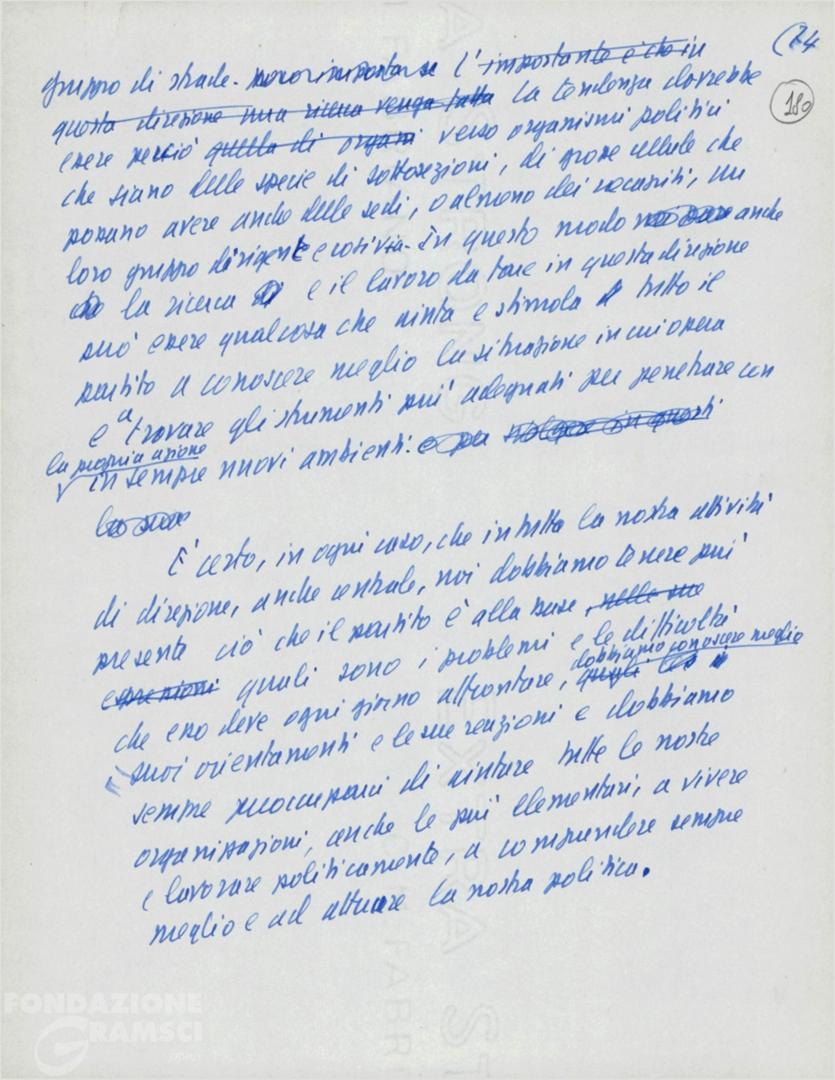 (74
180
gruppo di strade. L'importante è che in
questa direzione una ricerca venga fatta La tendenza dovrebbe
essere perciò quella di organi verso organismi politici
che siano delle specie di sottosezioni, di grosse cellule che
possano avere anche delle sedi, o almeno dei recapiti, un
loro gruppo dirigente e così via. In questo modo anche
la ricerca e il lavoro da fare in questa direzione
può essere qualcosa che aiuta e stimola tutto il
partito a conoscere meglio la situazione in cui opera
e a trovare gli strumenti più adeguati per penetrare con
la propria azione
in sempre nuovi ambienti. e per svolgere in questi
la sua
È certo, in ogni caso, che in tutta la nostra attività
di direzione, anche centrale, noi dobbiamo tenere più
presente ciò che il partito è alla base, nelle sue
espressioni quali sono i problemi e le difficoltà
che esso deve ogni giorno affrontare, dobbiamo conoscere meglio quali i
suoi orientamenti e le sue reazioni e dobbiamo
sempre preoccuparci di aiutare tutte le nostre
organizzazioni, anche le più elementari, a vivere
e lavorare politicamente, a comprendere sempre
meglio e ad attuare la nostra politica.
FONDAZIONE
GRAMSCI